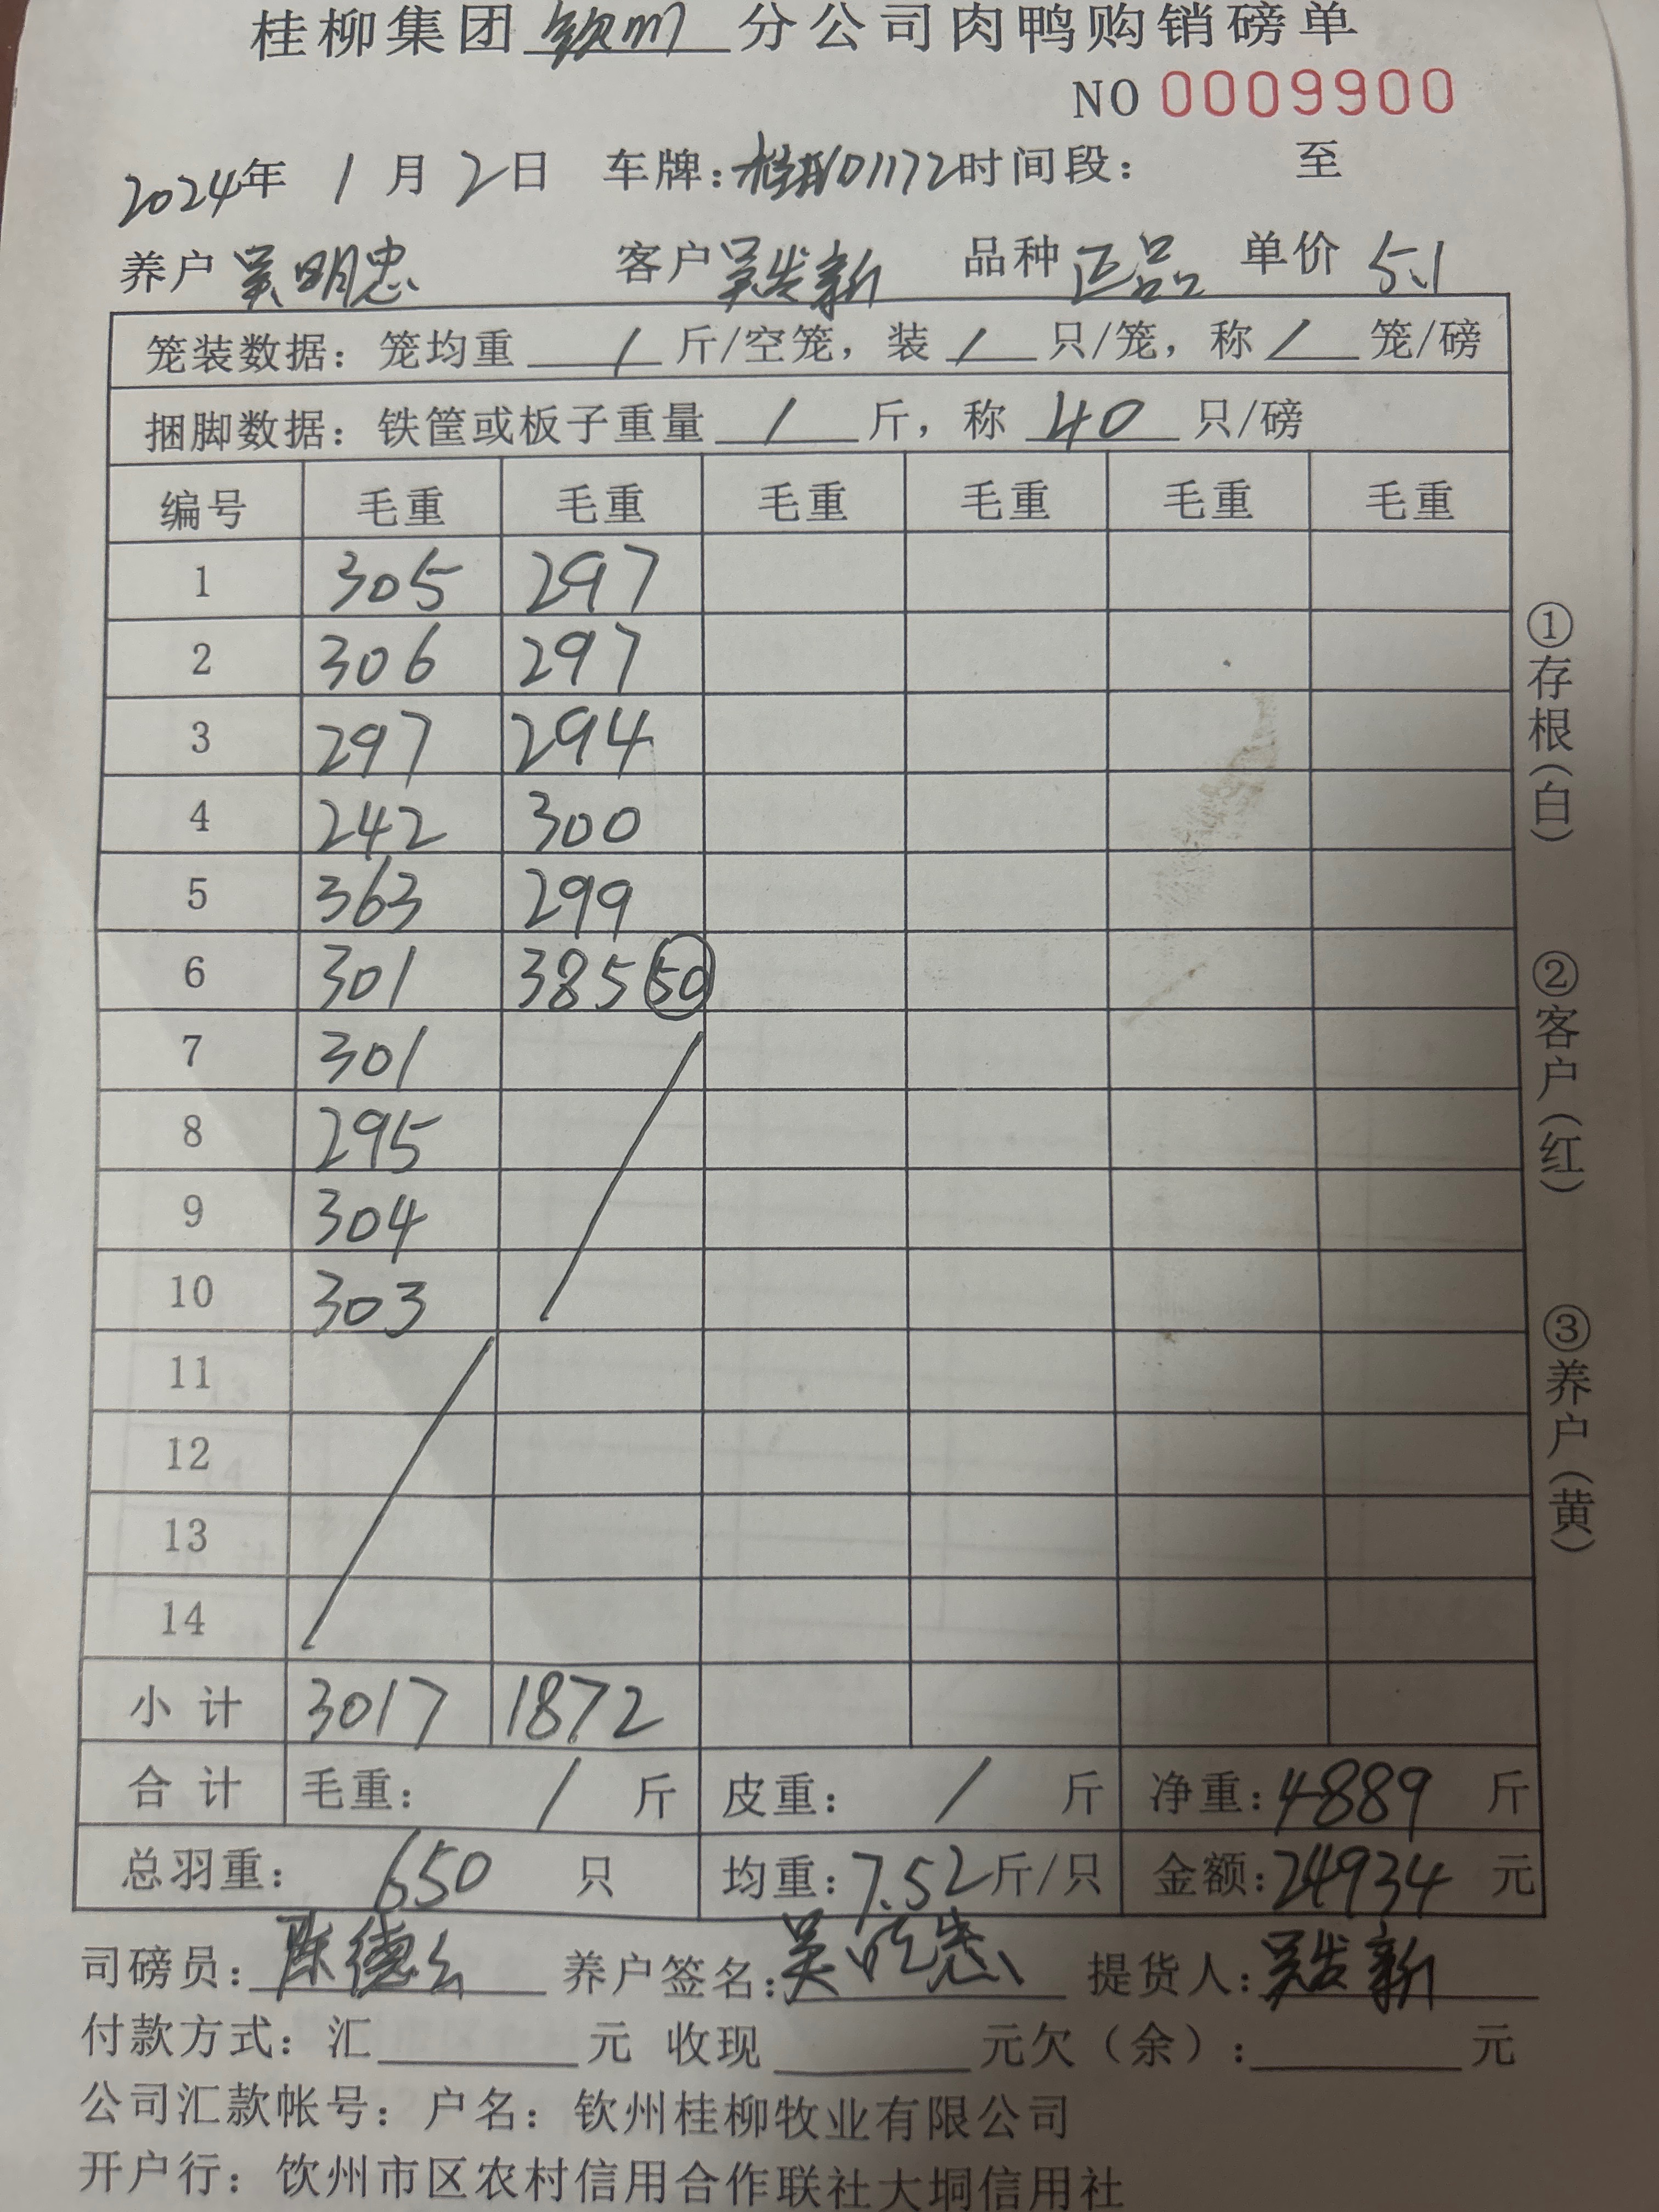 桂柳集团钦州分公司肉鸭购销磅单
NO 0009900
2024年 1月2日 车牌:桂N01172时间段: 至
养户 吴明忠 客户 吴发新 品种 正品 单价 5.1
笼装数据: 笼均重 / 斤/空笼, 装 / 只/笼, 称 / 笼/磅
捆脚数据: 铁筐或板子重量 / 斤, 称 40 只/磅
编号 毛重 毛重 毛重 毛重 毛重 毛重
1 305 297
2 306 297
3 297 294
4 242 300
5 363 299
6 301 385 50
7 301
8 295
9 304
10 303
11
12
13
14
小计 3017 1872
合计 毛重: / 斤 皮重: / 斤 净重: 4889 斤
总羽重: 650 只 均重: 7.52 斤/只 金额: 24934 元
司磅员: 陈德 养户签名: 吴明忠 提货人: 吴发新
付款方式: 汇 元 收现 元欠(余): 元
公司汇款帐号: 户名: 钦州桂柳牧业有限公司
开户行: 钦州市区农村信用合作联社大垌信用社
①存根(白) ②客户(红) ③养户(黄)